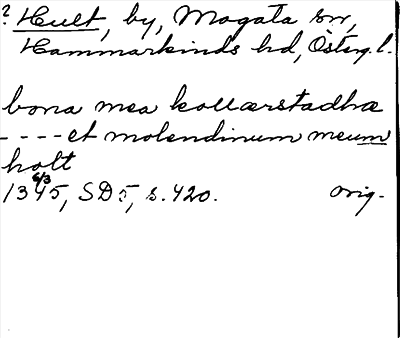 ? Hult, by, Mogata sn,
Hammarkinds hd, Österg.l.
bona mea kollærstadhæ
---- et molendinum meum
holt
6/3
1345, SD5, s. 420. orig.